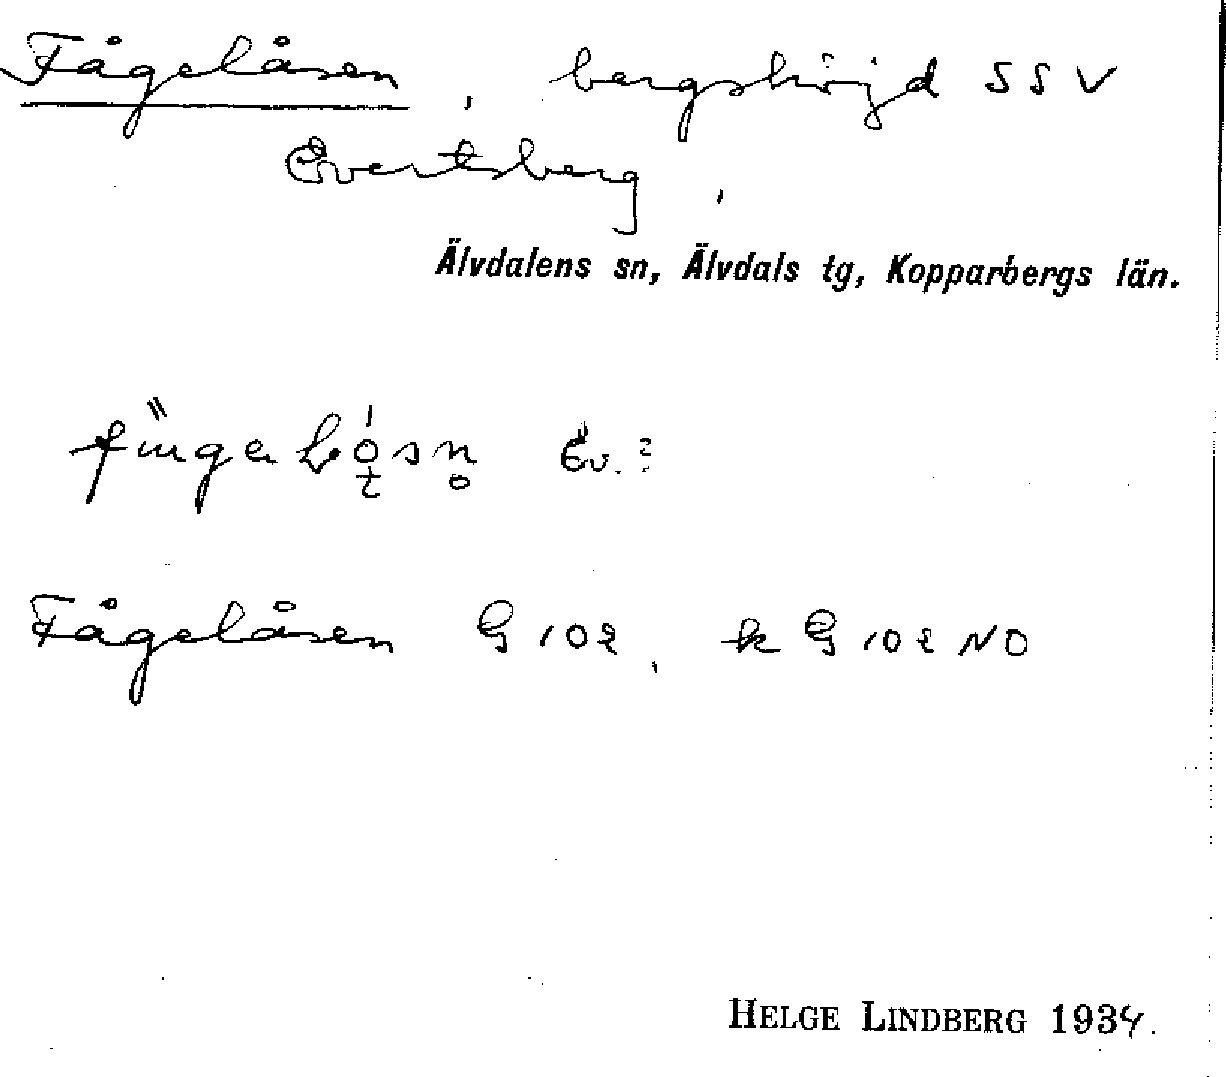 Fågelåsen, bergshöjd SSV
Evertsberg,
Älvdalens sn, Älvdals tg, Kopparbergs län.
Ev.?
Fågelåsen G 102, k G 102 NO
HELGE LINDBERG 1934.